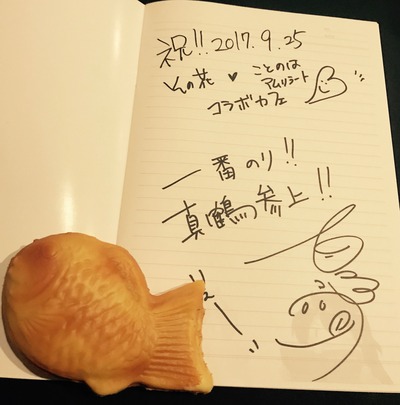 祝!! 2017.9.25
んの花 ♥ ことのは
アムリラート
コラボカフェ
一番のり!!
真鶴参上!!